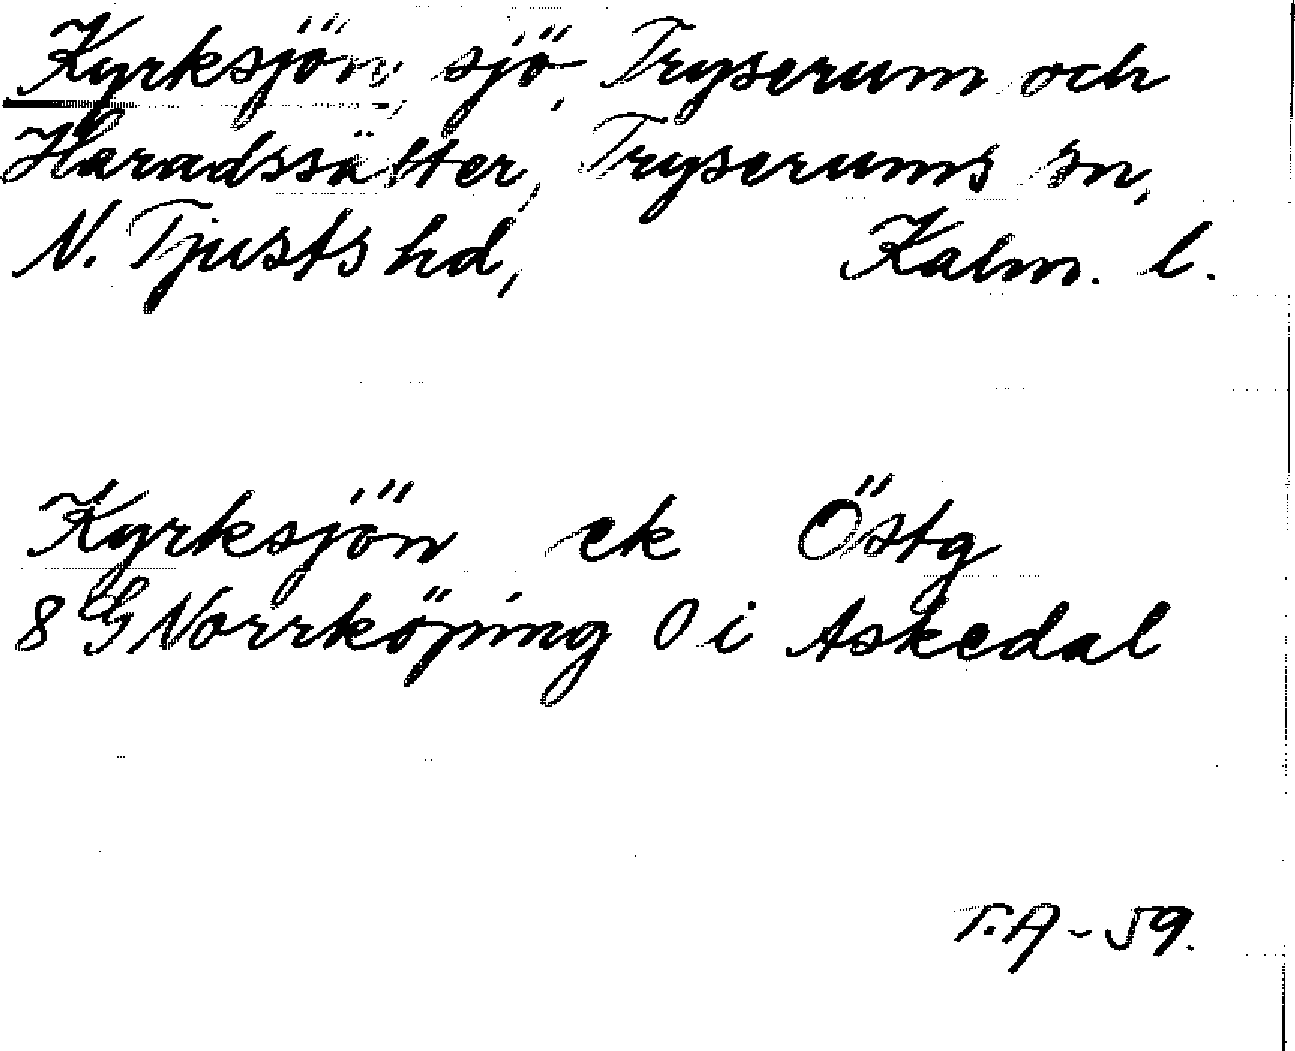 Kyrksjön, sjö, Tryserum och
Haradssäter, Tryserums sn,
N. Tjusts hd, Kalm. l.
Kyrksjön ek Östg
8 G Norrköping O i Askedal
T.A-59.